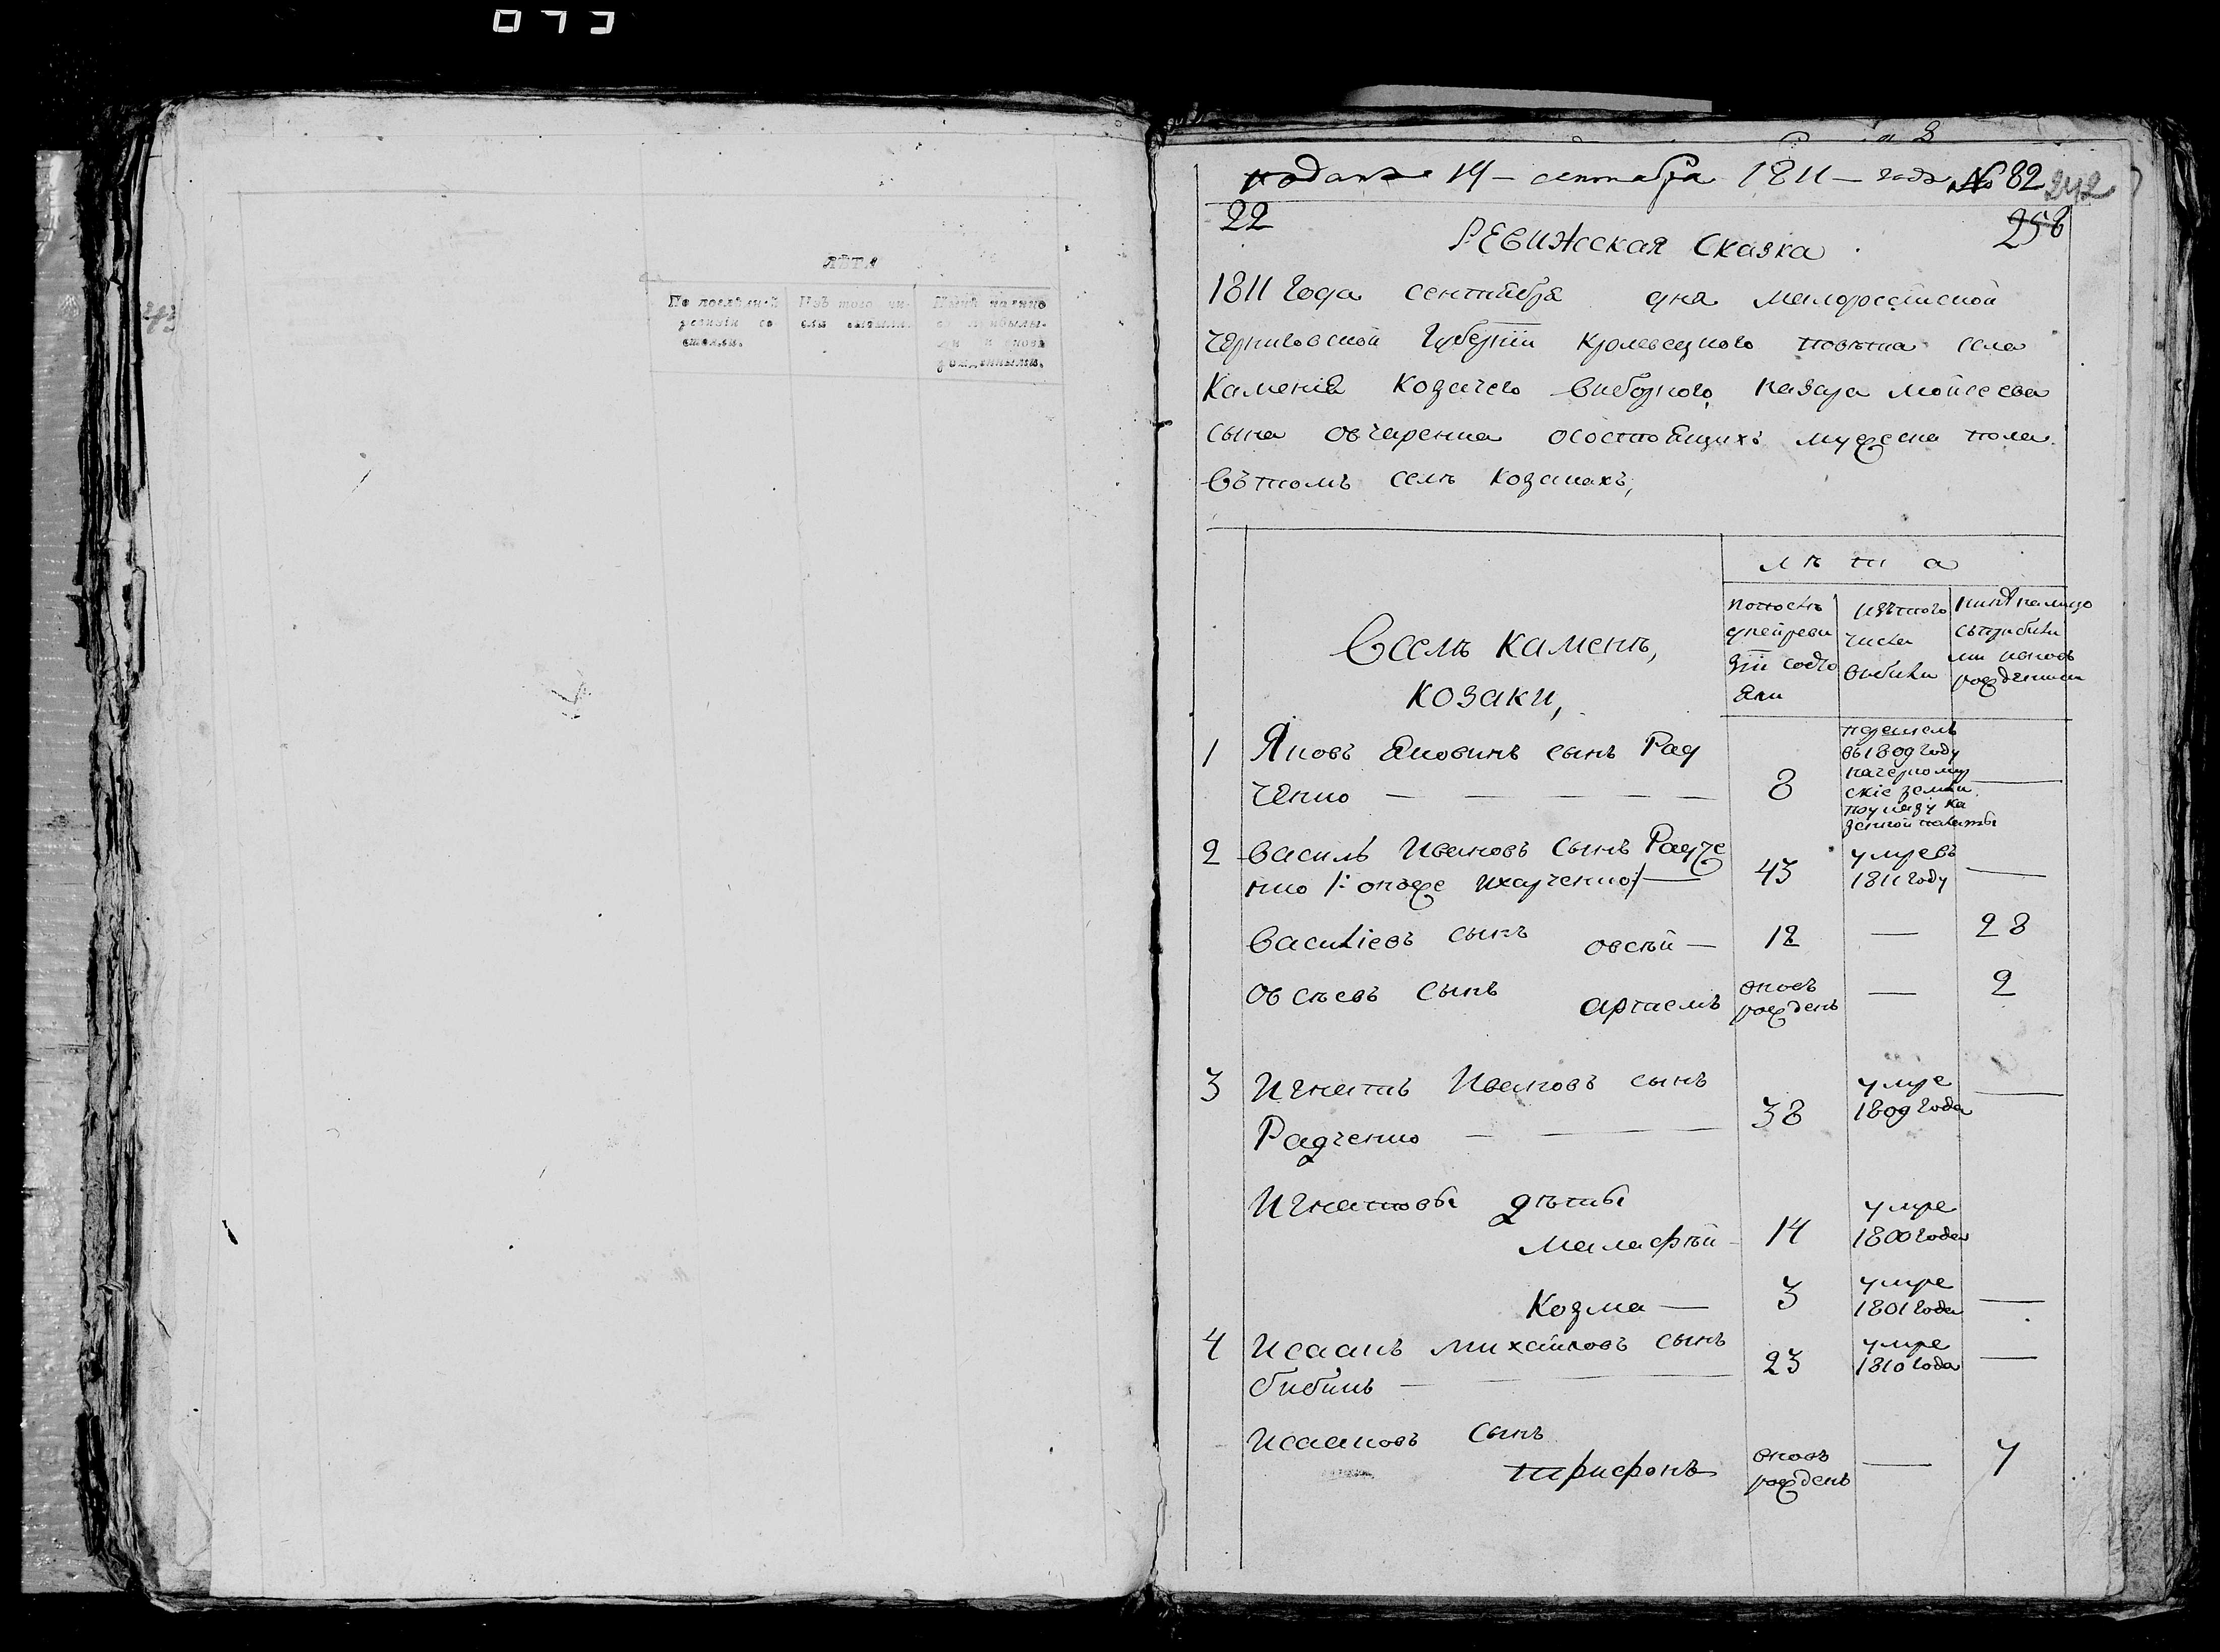 ЛѢТА
По послѣдней ревизіи со стояли.
Изъ того чи- сла выбыли.
Нынѣ на лицо съ прибылы- ми и вновь рожденными.
подана 19 – сентября 1811 – года № 82 242
22 258
РЕВИЖСКАЯ СКАЗКА
1811 года сентября дня малороссійской
черниговской губерніи кролевецкого повѣта села
Каменя козачего виборного назара мойсеева
сына овчаренка осостоящихъ мужеска пола
вътомъ селѣ козакахъ,
лѣта
Вселѣ каменѣ,
козаки,
попослѣ
днейреви
зіи состо
яли
изътого
числа
вибили
нинѣ налицо
съприбили
ми ивновь
рожденими
1 Яковъ Яковинъ сынъ Рад
ченко — 8
перешелъ
въ1809 году
начерномор
скіе земли
поуказу ка
зенной палаты
—
2 Василь Ивановъ Сынъ Радче
нко /: онъже ихарченко/ — 43
умревъ
1811 году
—
Василіевъ сынъ овсѣй — 12 — 28
Овсѣевъ сынъ артаемъ
вновъ
рожденъ
— 2
3 Игнатъ Ивановъ сынъ
Радченко — 38
умре
1809 года
—
Игнатовы дѣты
Малафѣй — 14
умре
1800 года
Козма — 3
умре
1801 года
—
4 Исаакъ михайловъ сынъ
бибикъ — 23
умре
1810 года
—
Исааковъ сынъ
трифонъ
вновъ
рожденъ
— 7